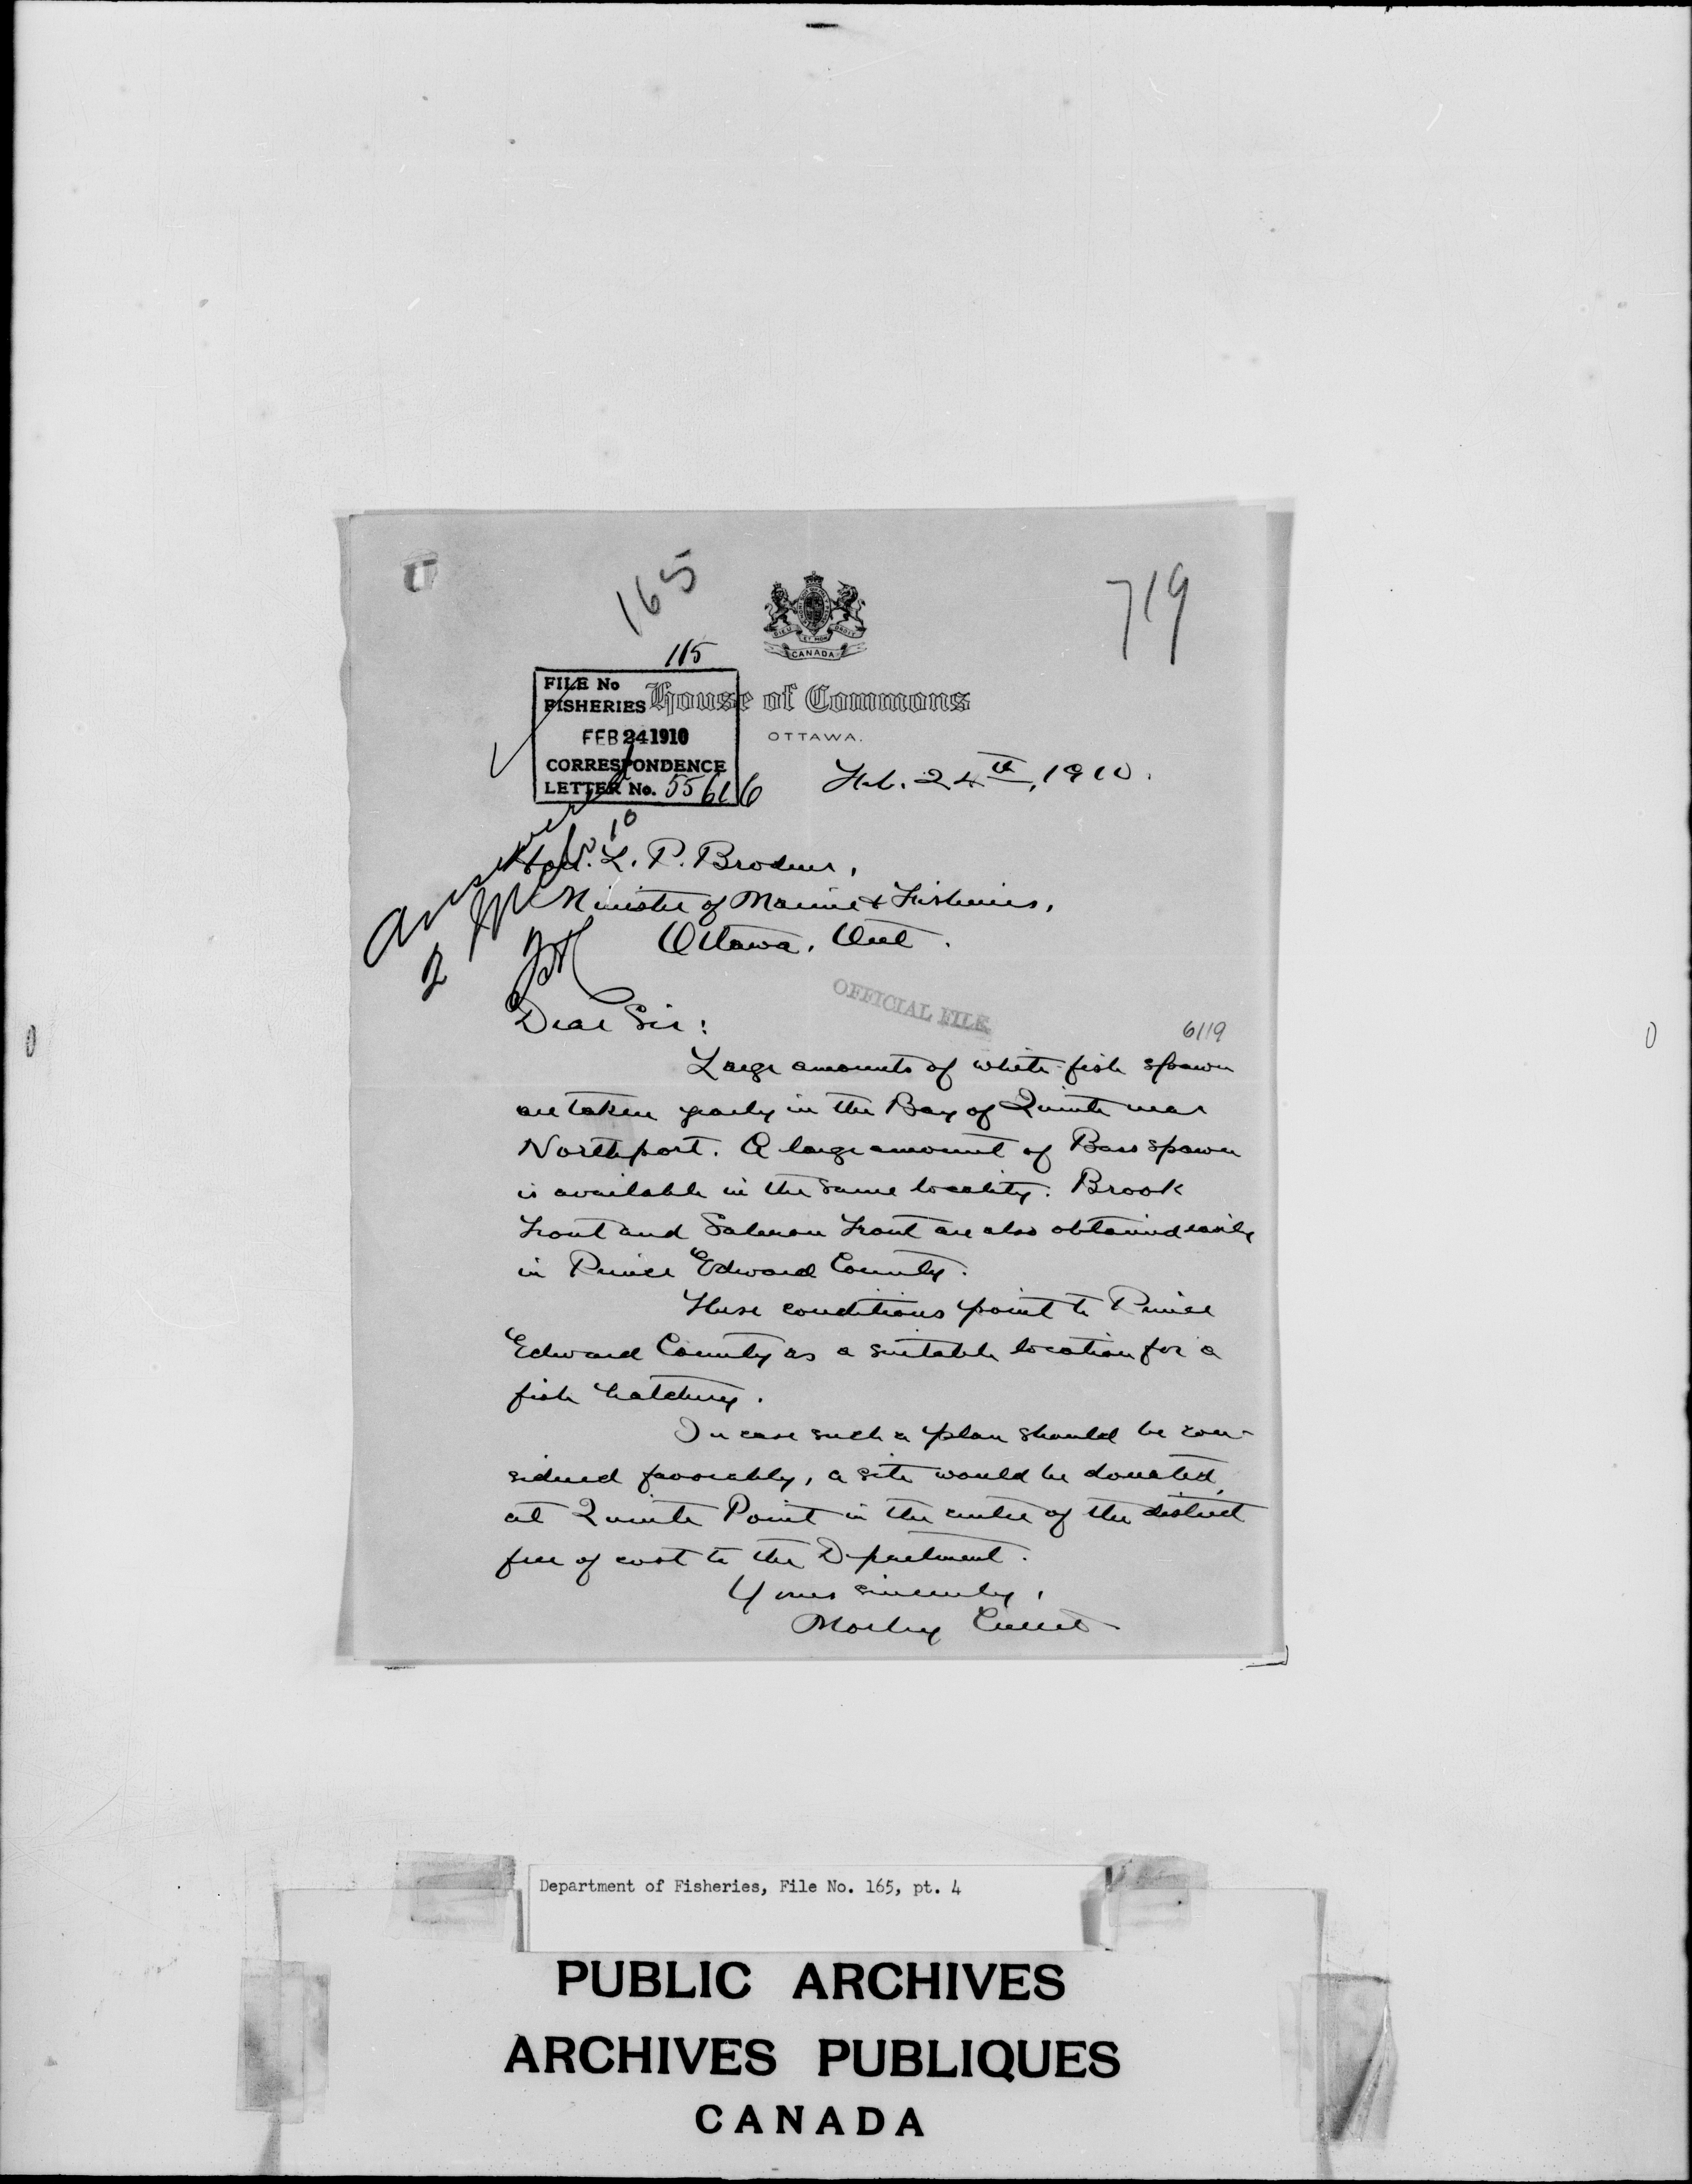 165
719
115
DIEU ET MON DROIT
CANADA
FILE No
FISHERIES
FEB 24 1910
CORRESPONDENCE
LETTER No. 55616
House of Commons
OTTAWA.
Feb. 24th, 1910.
Answered
2 10
Hon. L. P. Brodeur,
Minister of Marine & Fisheries,
Ottawa, Ont.
OFFICIAL FILE
Dear Sir:
6119
Large amounts of white-fish spawn
are taken yearly in the Bay of Quinte near
Northport. A large amount of Bass spawn
is available in the same locality. Brook
Trout and Salmon Trout are also obtained easily
in Prince Edward County.
These conditions point to Prince
Edward County as a suitable location for a
fish hatchery.
In case such a plan should be con-
sidered favorably, a site would be donated,
at Quinte Point in the centre of the district
free of cost to the Department.
Yours sincerely,
Morley Currie
Department of Fisheries, File No. 165, pt. 4
PUBLIC ARCHIVES
ARCHIVES PUBLIQUES
CANADA